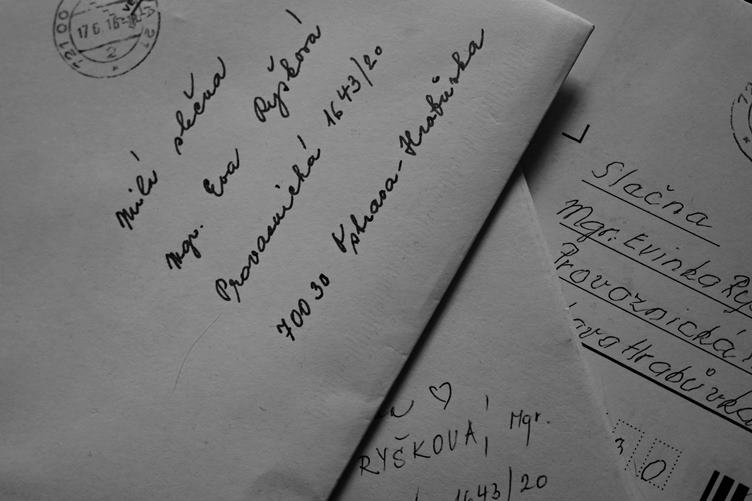 12100
17.6.16
2
Milá slečna
Mgr. Eva Ryšková
Provaznická 1643/20
70030 Ostrava-Hrabůvka
Slačna
Mgr. Evinka Ryš
Provoznická 1
ava Hrabůvka
3 0
♡
RYŠKOVÁ, Mgr.
1643/20